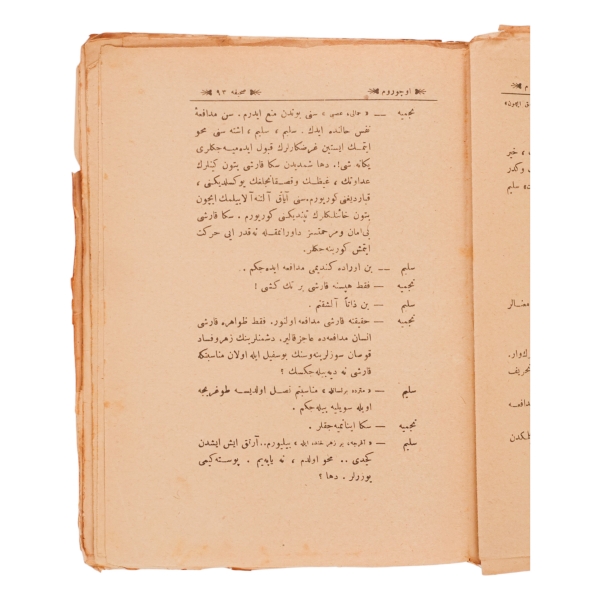 اوچوروم
صحیفه ٩٣
نجمیه — « حمانی عصبی » سنی بوندن منع ایدرم. سن مدافعهٔ
نفس حالنده ایدك. سلیم ، سلیم ، اشته سنی محو
ایتمك ایستین غرضکارلرك قبول ایده میه جکلری
یکانه شی!. دها شمدیدن سکا قارشی بتون کینلرك
عداوتك ، غیظك وقصقانجلغك یوکسلدیکنی ،
قباردیغنی کورییورم.سنی آیاق آلتنه آلابیلمك ایچون
بتون خائنلکلرك تپندیکنی کورییورم . سکا قارشی
بی امان ومرحمتسز داورانمقله نه قدر ایی حرکت
ایتمش کورینه جکلر.
سلیم — بن اوراده کندیمی مدافعه ایده جکم ..
نجمیه — فقط هپسنه قارشی بر تك کشی !
سلیم — بن ذاتاً آلشقنم .
نجمیه — حقیقته قارشی مدافعه اولنور. فقط ظواهره قارشی
انسان مدافعه ده عاجز قالیر. دشمنلرینك زهر وفساد
قوصان سوزلرینه وسنك بوسفیل ایله اولان مناسبتکه
قارشی نه دییه بیله جکسك ؟
سلیم — مناسبتم نصل اولدیسه طوغریجه
اویله سویلیه بیله جکم .
نجمیه — سکا اینانمیه جقلر .
سلیم — « آغیرجه، بر زهر خنده ایله » بیلیورم.. آرتق ایش ایشدن
کچدی .. محو اولدم ، نه یاپه یم . پوسته کیمی
یوزرلر . دها ؟
، خبر
وکدر
سلیم
تحریف
مدافعه